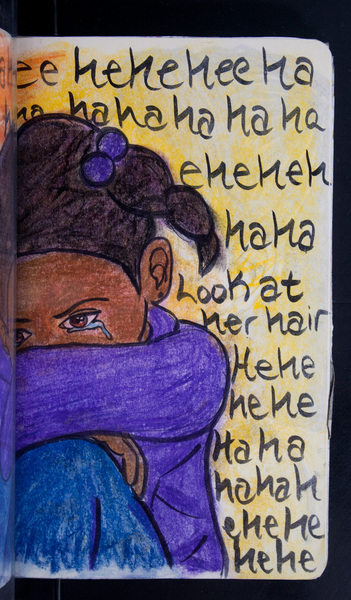 ee hehehee ha
ha hahaha ha ha
eheheh
haha
Look at
her hair
Hehe
hehe
Haha
hahah
ehehe
hehe